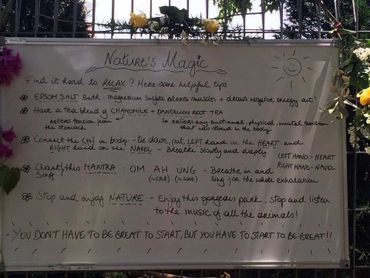 Nature's Magic
Find it hard to RELAX? Here some helpful tips
EPSOM SALT Bath magnesium sulfate relaxes muscles + draws negative energy out!
Have a tea blend of CHAMOMILE + DANDELION ROOT TEA
relieves tension from the stomach
to release any emotional, physical, mental tension that is stored in the body
Connect the CHI in body - lie down, put LEFT hand on the HEART and
RIGHT hand on the NAVEL - Breathe slowly and deeply
LEFT HAND - HEART
RIGHT HAND - NAVEL
Chant/Sing this MANTRA: OM AH UNG - Breathe in and
Sing for the whole exhalation
Stop and enjoy NATURE - Enjoy this gorgeous park, stop and listen
to the music of all the animals!
- YOU DON'T HAVE TO BE GREAT TO START, BUT YOU HAVE TO START TO BE GREAT!!